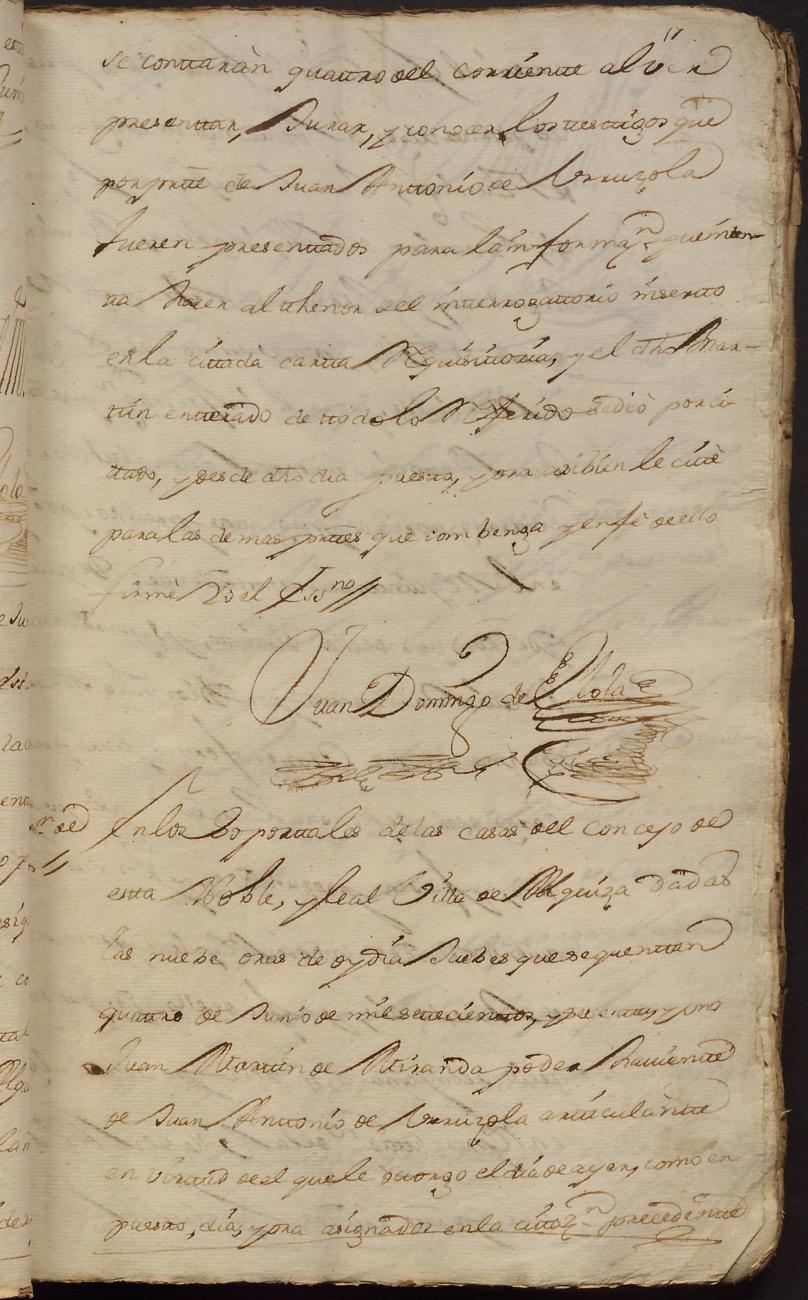 17
se conttaràn quattro del corriente al ver
presenttar, Jurar, y conozer los testtigos que
por partte de Juan Anttonio de Urruzola
fueren presenttados para la informaz.n que inten-
tta hazer al thenor del intterrogattorio inserto
en la cittada cartta Requisitoria, y el dho Mar-
tin entterado de ttodo lo Referido se diò por ci-
ttado, y desde dho dia puestto, y ora asibien le cittè
para las demas parttes que combenga y en fè de ello
firmè Yo el Essno //
Juan Domingo de Elola
En los Soportales de las casas del Concejo de
estta Noble, y leal Villa de Alquiza dadas
las nuebe oras de oy dia Juebes que se quenttan
quattro de Junio de mil settecienttos, y settentta, y uno
Juan Marttin de Miranda poder haviente
de Juan Anttonio de Urruzola articulantte
en virttud de el que le otorgo el dia de ayer, como en
puestto, dia, y ora asignados en la cittaz.n precedentte